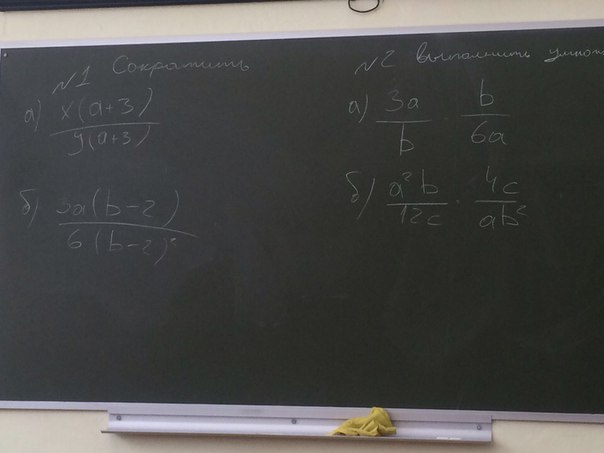 №1 Сократить
а) x(a+3) / y(a+3)
б) 3a(b-2) / 6(b-2)²
№2 выполнить умнож
а) 3a / b · b / 6a
б) a²b / 12c · 4c / ab²